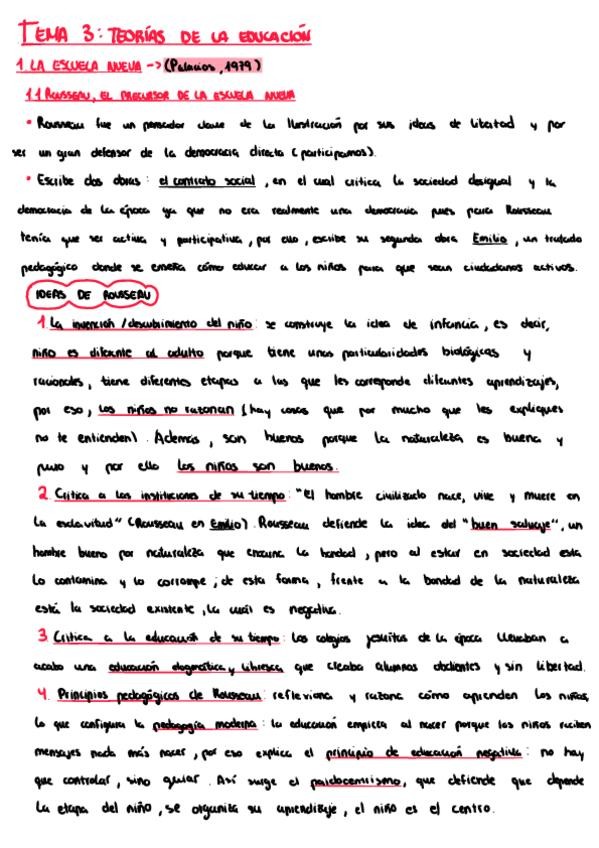 TEMA 3: TEORÍAS DE LA EDUCACIÓN
1. LA ESCUELA NUEVA -> (Palacios, 1979)
1.1 ROUSSEAU, EL PRECURSOR DE LA ESCUELA NUEVA
• Rousseau fue un pensador clave de la Ilustración por sus ideas de libertad y por
ser un gran defensor de la democracia directa (participamos).
• Escribe dos obras: el contrato social, en el cual critica la sociedad desigual y la
democracia de la época ya que no era realmente una democracia pues para Rousseau
tenía que ser activa y participativa, por ello, escribe su segunda obra Emilio, un tratado
pedagógico donde se enseña cómo educar a los niños para que sean ciudadanos activos.
IDEAS DE ROUSSEAU
1. La invención / descubrimiento del niño: se construye la idea de infancia, es decir,
niño es diferente al adulto porque tiene unas particularidades biológicas y
racionales, tiene diferentes etapas a las que les corresponde diferentes aprendizajes,
por eso, los niños no razonan (hay cosas que por mucho que les expliques
no te entienden). Además, son buenos porque la naturaleza es buena y
puro y por ello los niños son buenos.
2. Crítica a las instituciones de su tiempo: "el hombre civilizado nace, vive y muere en
la esclavitud" (Rousseau en Emilio). Rousseau defiende la idea del "buen salvaje", un
hombre bueno por naturaleza que encarna la bondad, pero al estar en sociedad esta
lo contamina y lo corrompe; de esta forma, frente a la bondad de la naturaleza
está la sociedad existente, la cuál es negativa.
3. Crítica a la educación de su tiempo: los colegios jesuitas de la época llevaban a
acabo una educación dogmática y libresca que creaba alumnos obedientes y sin libertad.
4. Principios pedagógicos de Rousseau: reflexiona y razona cómo aprenden los niños,
lo que configura la pedagogía moderna: la educación empieza al nacer porque los niños reciben
mensajes nada más nacer, por eso explica el principio de educación negativa: no hay
que controlar, sino guiar. Así surge el paidocentrismo, que defiende que depende
la etapa del niño, se organiza su aprendizaje, el niño es el centro.